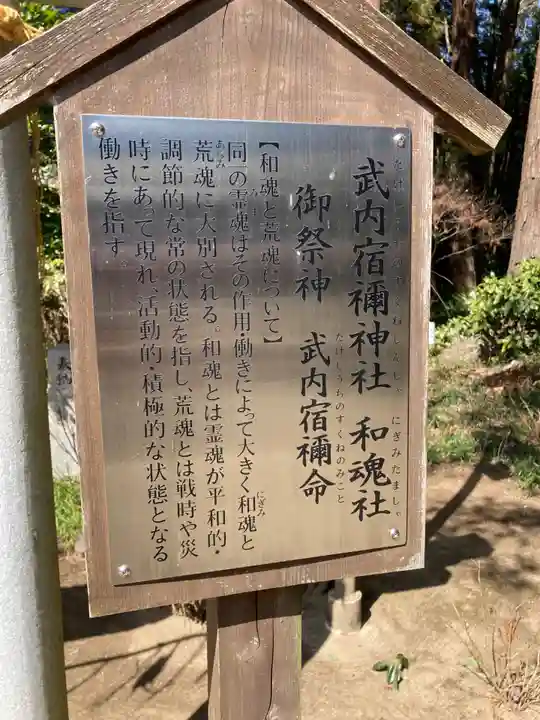 武内宿禰神社 和魂社
たけしうちのすくねじんじゃ にぎみたましゃ
御祭神 武内宿禰命
たけしうちのすくねのみこと
【和魂と荒魂について】
同一の霊魂はその作用・働きによって大きく和魂と
にぎみ
荒魂に大別される。和魂とは霊魂が平和的・
あらみ
調節的な常の状態を指し、荒魂とは戦時や災
時にあって現れ、活動的・積極的な状態となる
働きを指す